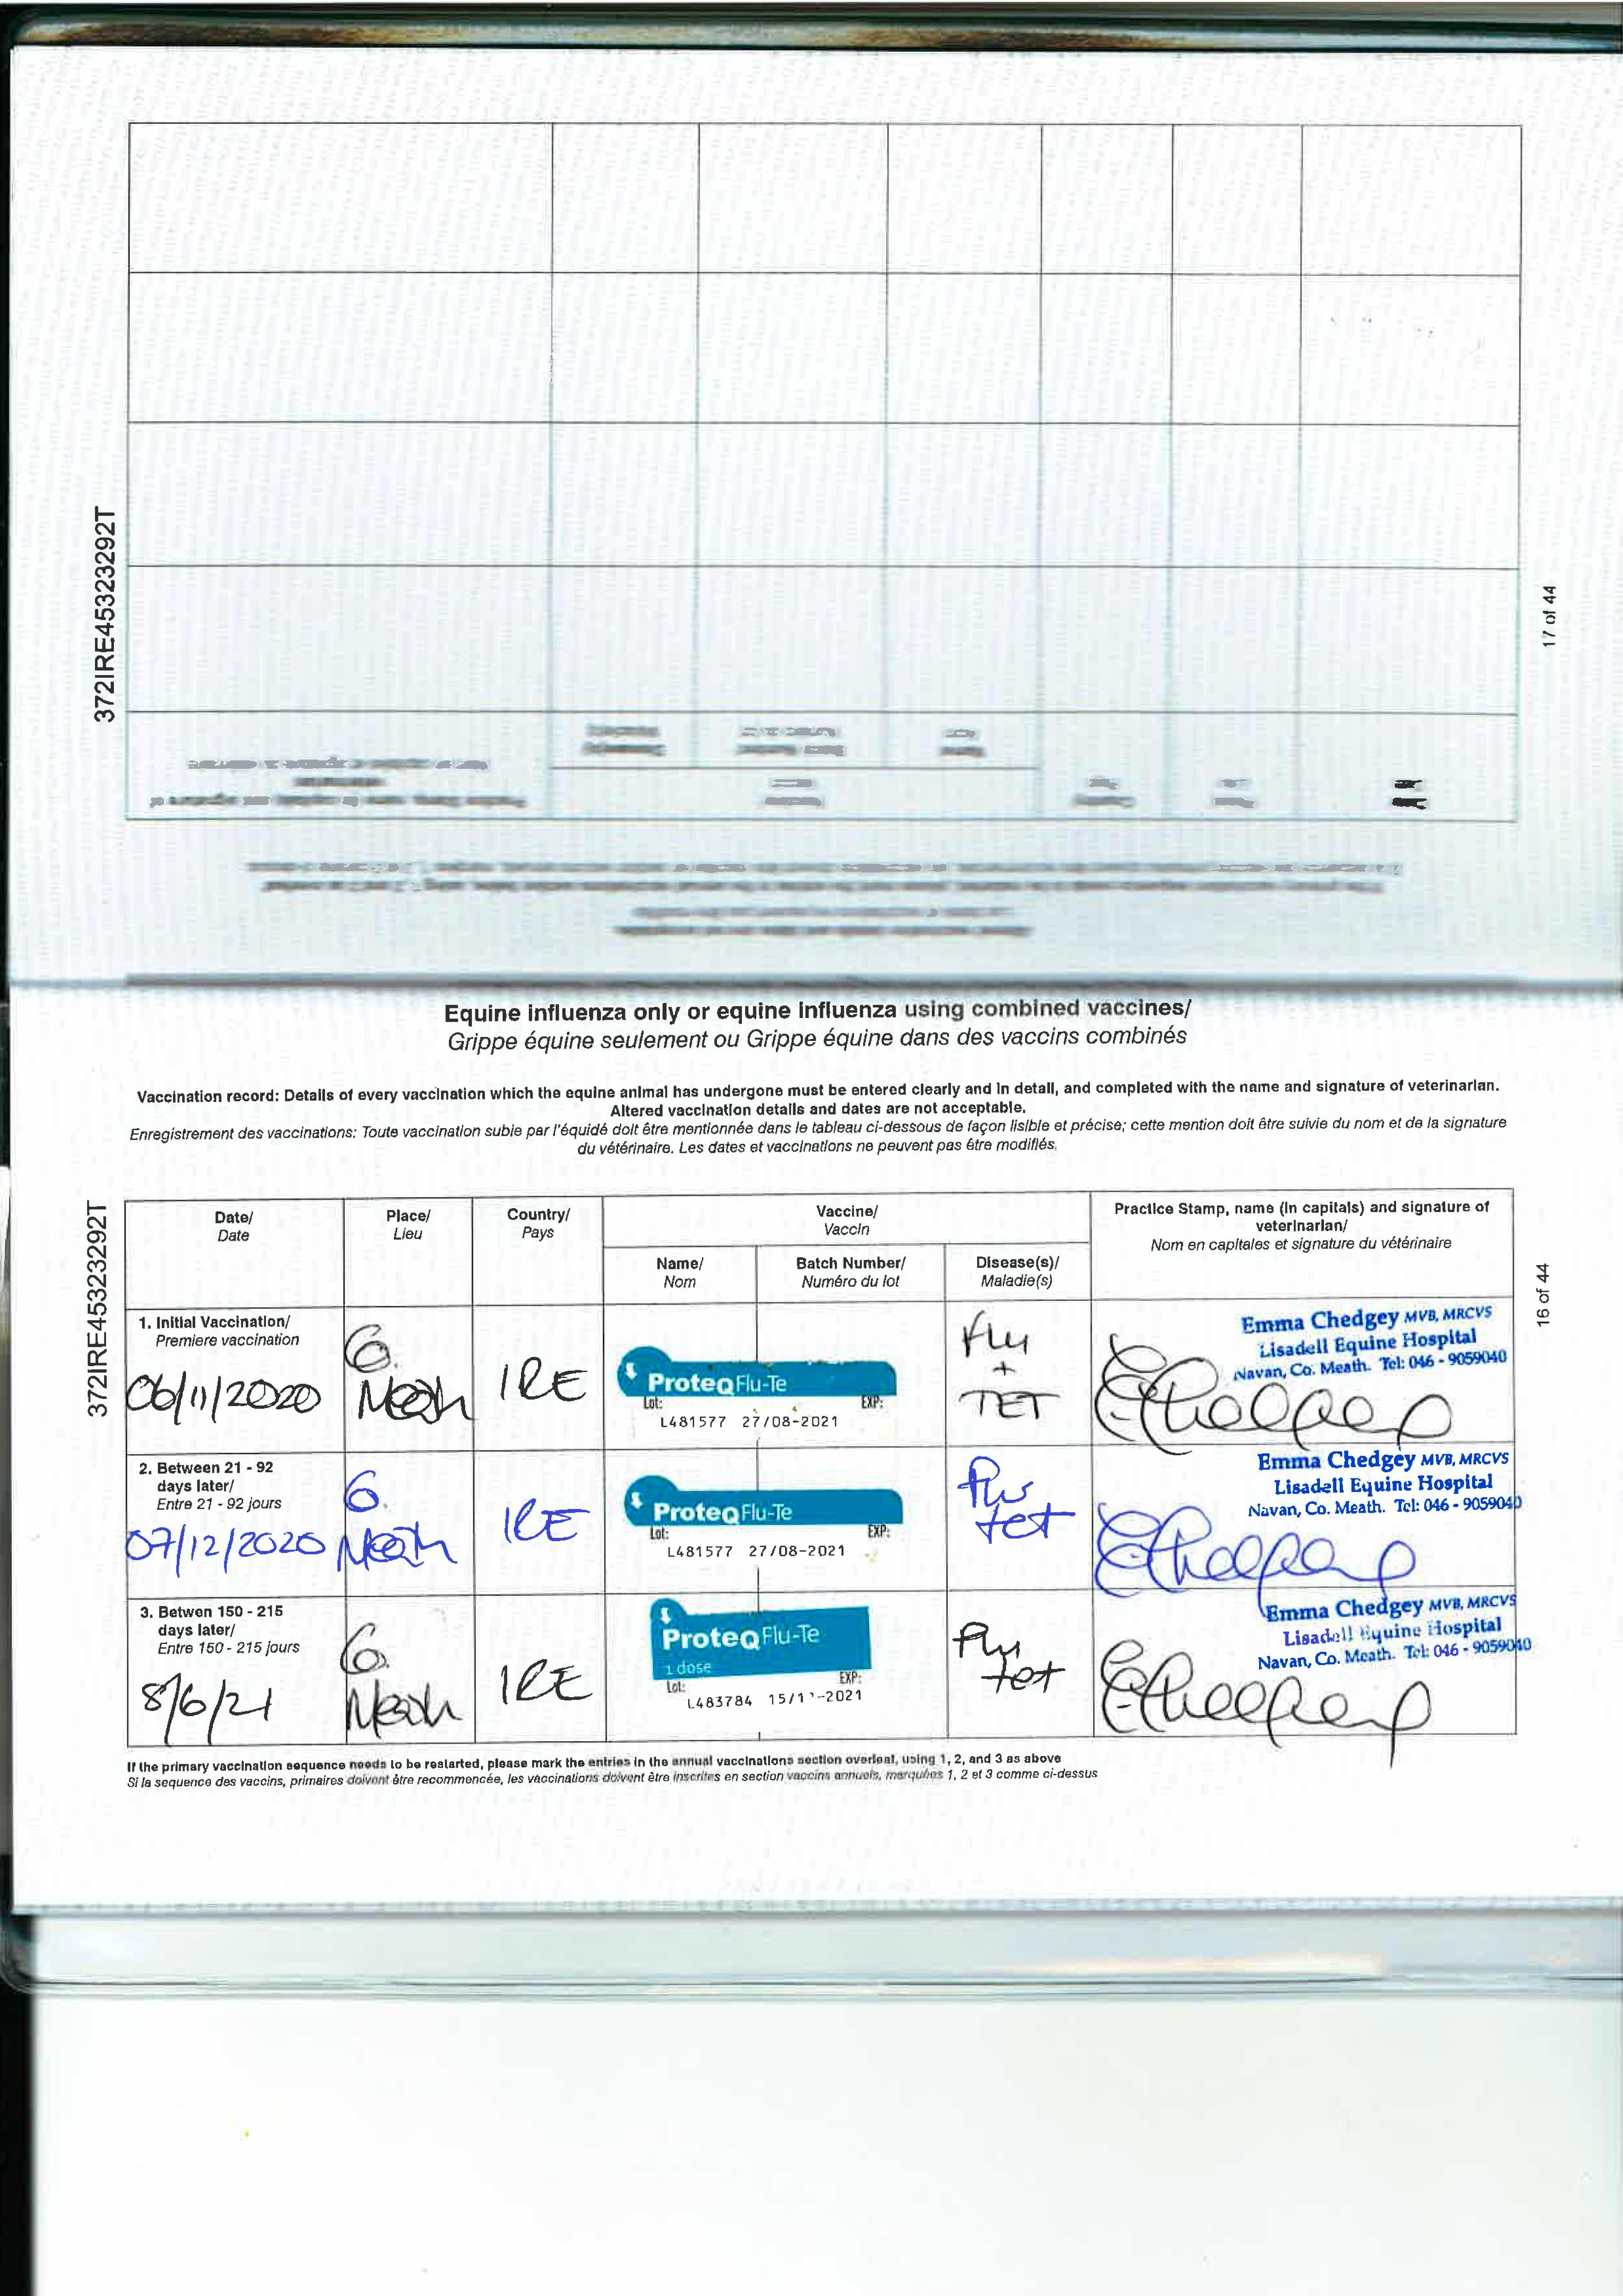 372IRE45323292T
17 of 44
Equine influenza only or equine influenza using combined vaccines/
Grippe équine seulement ou Grippe équine dans des vaccins combinés
Vaccination record: Details of every vaccination which the equine animal has undergone must be entered clearly and in detail, and completed with the name and signature of veterinarian.
Altered vaccination details and dates are not acceptable.
Enregistrement des vaccinations: Toute vaccination subie par l'équidé doit être mentionnée dans le tableau ci-dessous de façon lisible et précise; cette mention doit être suivie du nom et de la signature
du vétérinaire. Les dates et vaccinations ne peuvent pas être modifiés.
372IRE45323292T
16 of 44
Date/
Date
Place/
Lieu
Country/
Pays
Vaccine/
Vaccin
Name/
Nom
Batch Number/
Numéro du lot
Disease(s)/
Maladie(s)
Practice Stamp, name (in capitals) and signature of
veterinarian/
Nom en capitales et signature du vétérinaire
1. Initial Vaccination/
Premiere vaccination
06/11/2020
Co.
Meath
IRE
ProteqFlu-Te
Lot: EXP:
L481577 27/08-2021
Flu
+
TET
Emma Chedgey MVB, MRCVS
Lisadell Equine Hospital
Navan, Co. Meath. Tel: 046 - 9059040
2. Between 21 - 92
days later/
Entre 21 - 92 jours
07/12/2020
Co.
Meath
IRE
ProteqFlu-Te
Lot: EXP:
L481577 27/08-2021
Flu
tet
Emma Chedgey MVB, MRCVS
Lisadell Equine Hospital
Navan, Co. Meath. Tel: 046 - 9059040
3. Betwen 150 - 215
days later/
Entre 150 - 215 jours
8/6/21
Co.
Meath
IRE
ProteqFlu-Te
1 dose
Lot: EXP:
L483784 15/11-2021
Flu
tet
Emma Chedgey MVB, MRCVS
Lisadell Equine Hospital
Navan, Co. Meath. Tel: 046 - 9059040
If the primary vaccination sequence needs to be restarted, please mark the entries in the annual vaccinations section overleaf, using 1, 2, and 3 as above
Si la sequence des vaccins, primaires doivent être recommencée, les vaccinations doivent être inscrites en section vaccins annuels, marquées 1, 2 et 3 comme ci-dessus